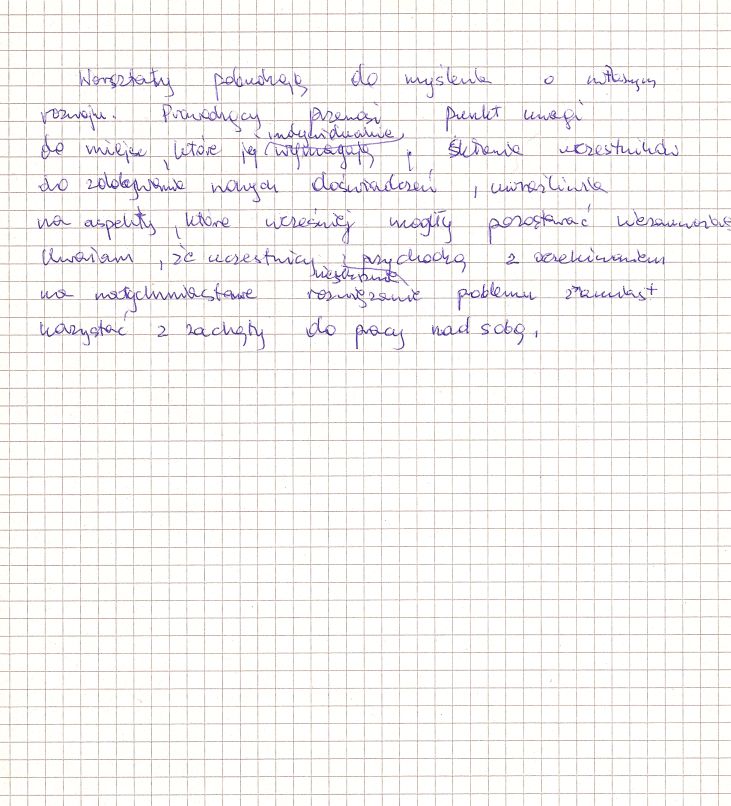 Warsztaty pobudzają do myślenia o własnym
rozwoju. Prowadzący przenosi punkt uwagi
indywidualnie
do miejsc, które jej wymagają, skłania uczestników
do zdobywania nowych doświadczeń, uwrażliwia
na aspekty, które wcześniej mogły pozostawać niezauważone
Uważam, że uczestnicy przychodzą z oczekiwaniem
niesłusznie
na natychmiastowe rozwiązanie problemu zamiast
korzystać z zachęty do pracy nad sobą.